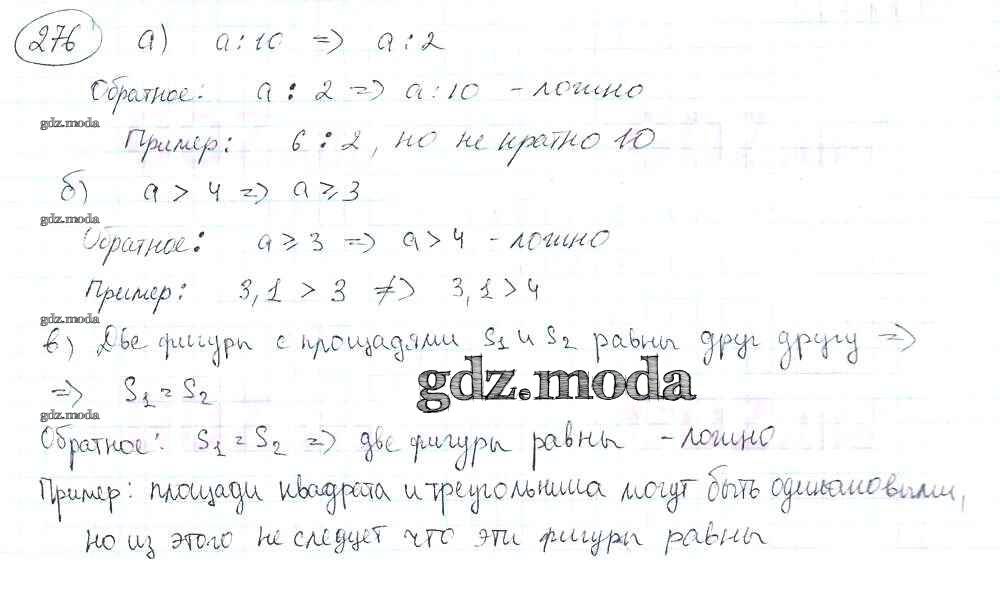 276 а) a : 10 => a : 2
Обратное: a : 2 => a : 10 - ложно
gdz.moda
Пример: 6 : 2, но не кратно 10
б) a > 4 => a ≥ 3
gdz.moda
Обратное: a ≥ 3 => a > 4 - ложно
Пример: 3,1 > 3 ≠> 3,1 > 4
gdz.moda
в) Две фигуры с площадями S1 и S2 равны друг другу =>
gdz.moda
=> S1 = S2
gdz.moda
Обратное: S1 = S2 => две фигуры равны - ложно
Пример: площади квадрата и треугольника могут быть одинаковыми,
но из этого не следует что эти фигуры равны